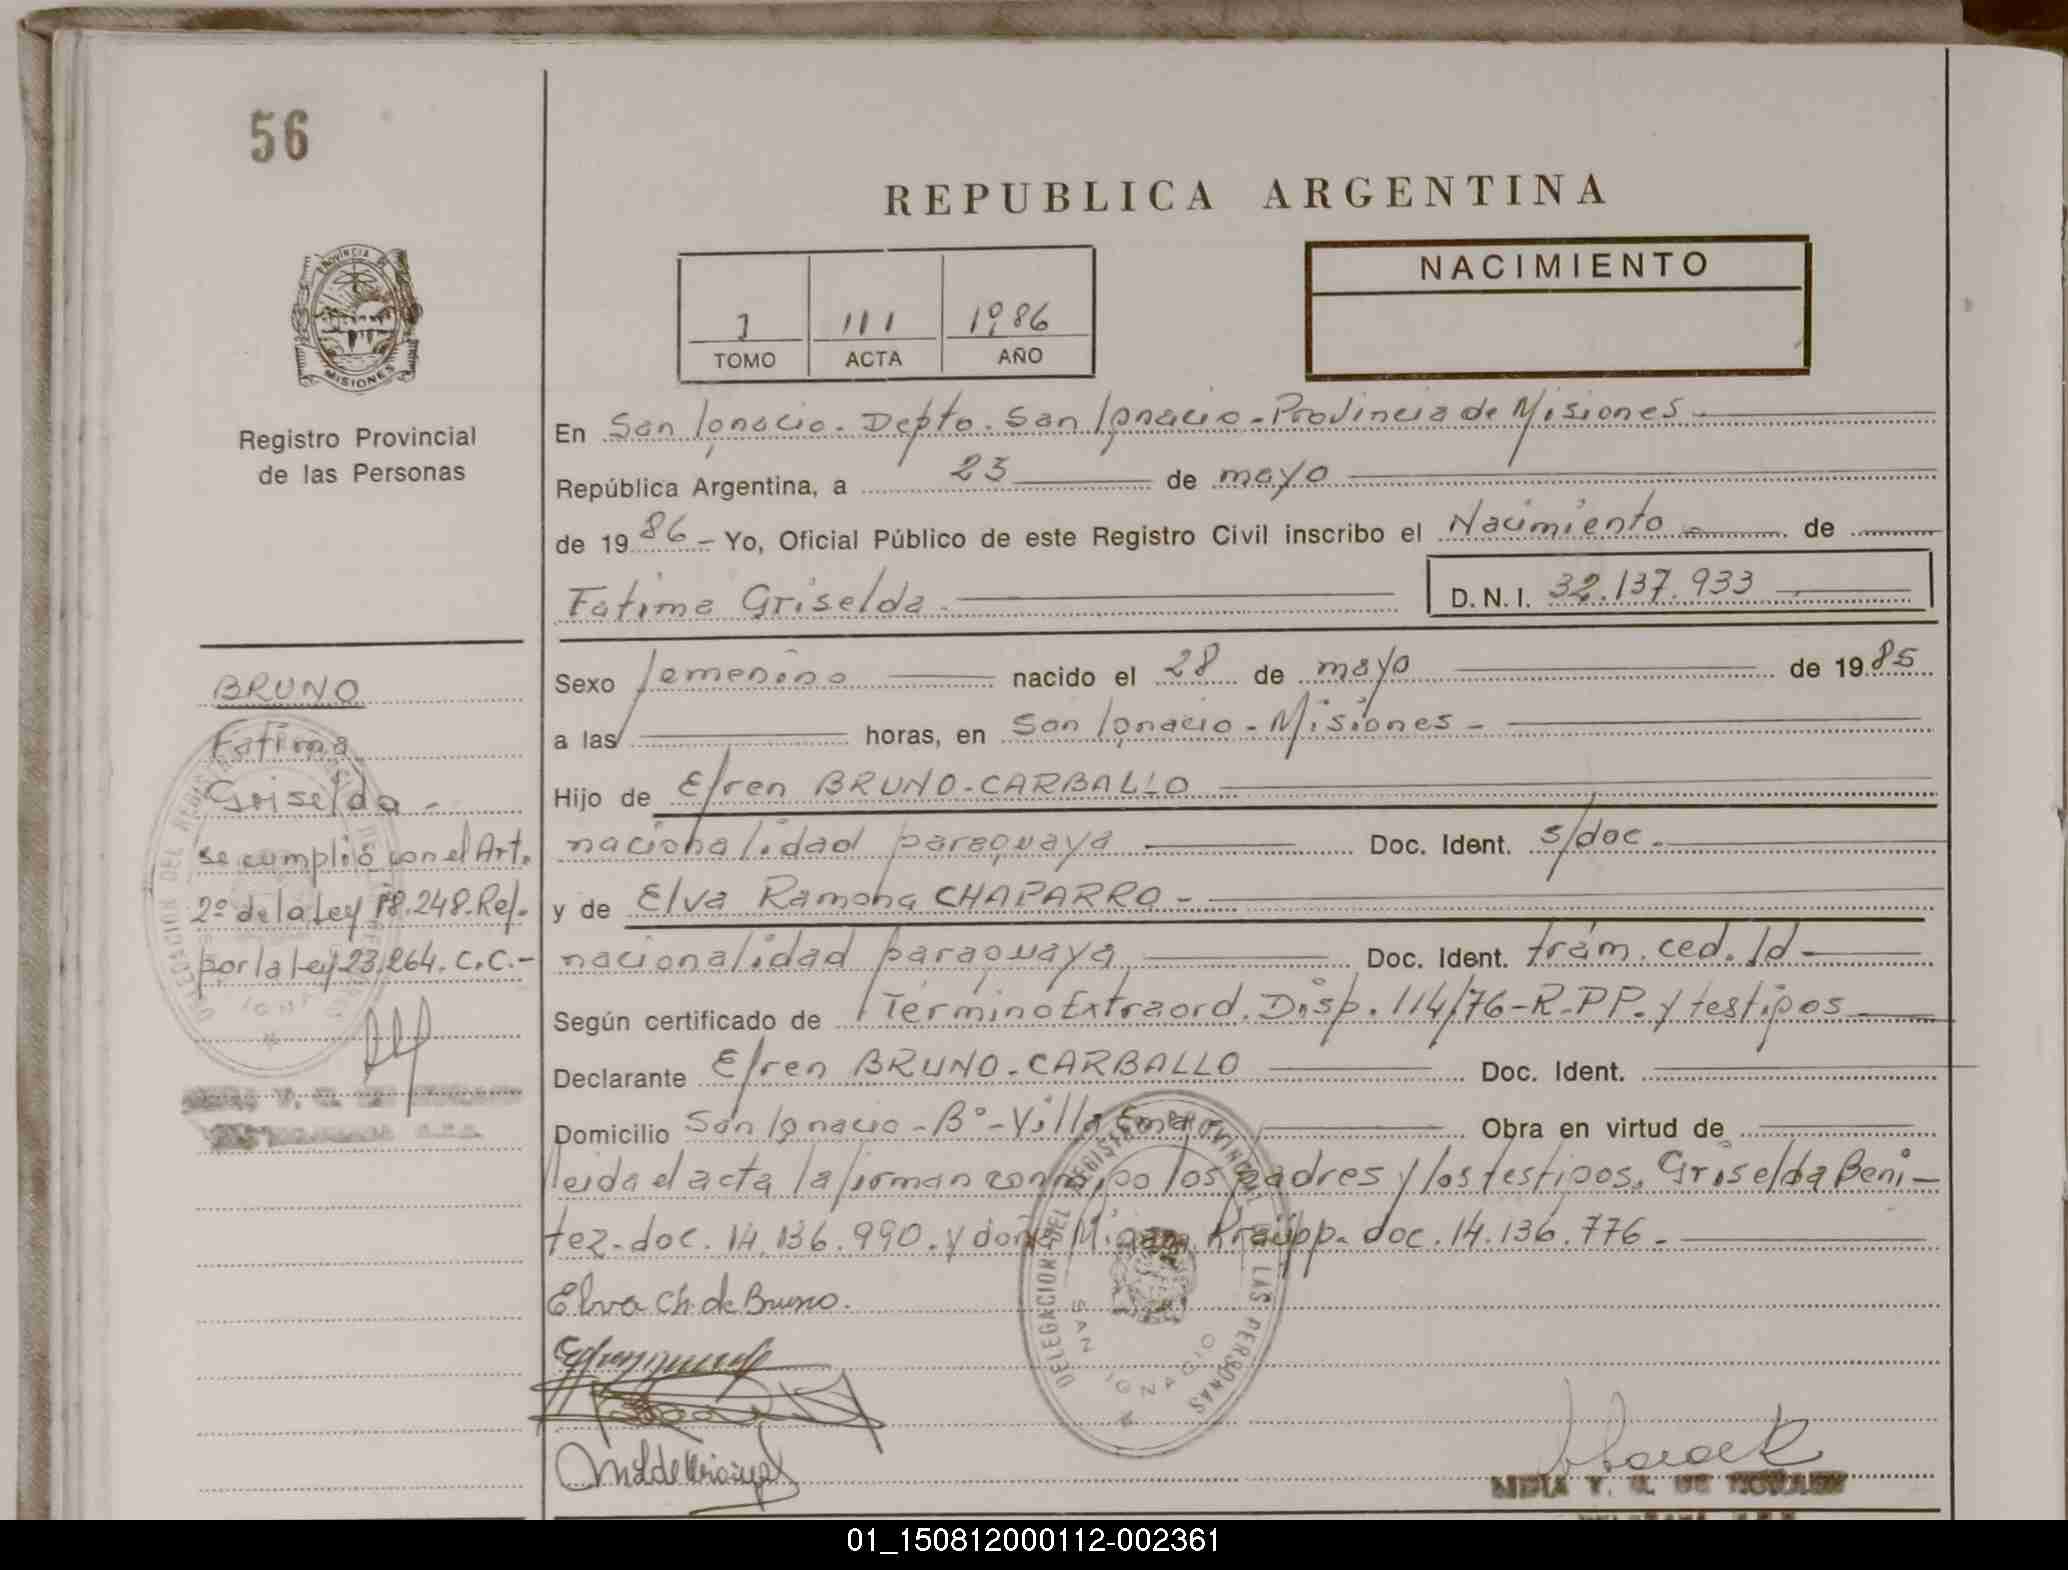 56
REPUBLICA ARGENTINA
PROVINCIA DE
MISIONES
Registro Provincial
de las Personas
1 111 1986
TOMO ACTA AÑO
NACIMIENTO
En San Ignacio. Depto. San Ignacio - Provincia de Misiones
República Argentina, a 23 de mayo
de 1986 - Yo, Oficial Público de este Registro Civil inscribo el Nacimiento de
Fatima Griselda. D.N.I. 32.137.933
Sexo femenino nacido el 28 de mayo de 1985
a las horas, en San Ignacio - Misiones -
Hijo de Efren BRUNO-CARBALLO
nacionalidad paraguaya Doc. Ident. s/doc.
y de Elva Ramona CHAPARRO -
nacionalidad paraguaya Doc. Ident. trám. ced. Id
Según certificado de Término Extraord. Disp. 114/76-R.PP. y testigos
Declarante Efren BRUNO-CARBALLO Doc. Ident.
Domicilio San Ignacio - B° - Villa Obra en virtud de
leida el acta la firman conmigo los padres y los testigos, Griselda Beni-
tez. doc. 14.136.990. y doña doc. 14.136.776.
Elva Ch. de Bruno.
BRUNO
Fatima
Griselda -
se cumplió con el Art.
2º de la Ley 18.248. Ref.
por la Ley 23.264. C.C.-
DELEGACION DEL REGISTRO PROVINCIAL DE LAS PERSONAS
SAN IGNACIO
01_150812000112-002361